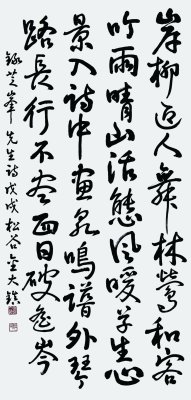 岸柳迎人舞林鶯和客
吟雨晴山活態風暖草生心
景入詩中畫泉鳴譜外琴
路長行不盡西日破遙岑
錄芝峯先生詩戊戌松谷金大鎮